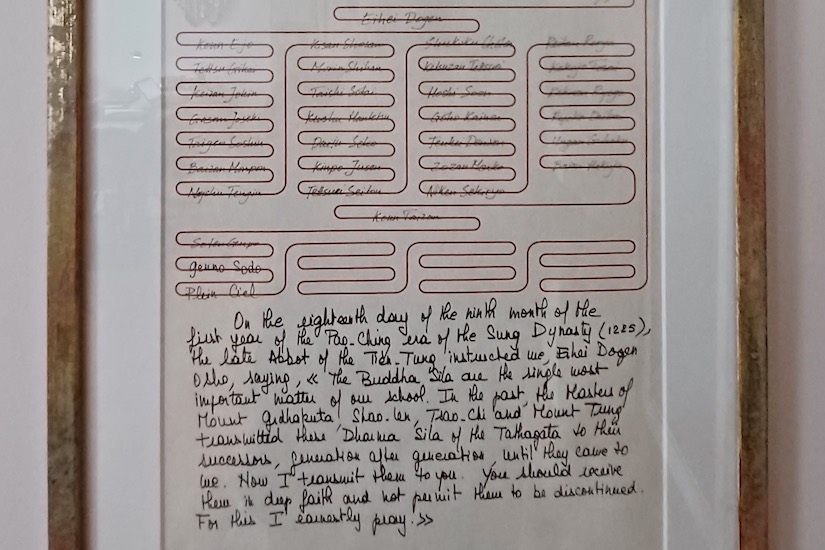 Eihei Dogen
Koun Ejo
Tettsu Gikai
Keizan Jokin
Gasan Joseki
Taigen Soshin
Baizan Monpon
Tengin
Kisan Shosan
Morin Shihan
Taishi Sotai
Kinpo Jusen
Hoshi Soon
Goho Kainon
Tenkei Denson
Zozan Monko
Niken Sekiryo
Koun Taizan
Genpo
Genno Sodo
Plein Ciel
On the eighteenth day of the ninth month of the
first year of the Pao-Ching era of the Sung Dynasty (1225),
the late Abbot of the Tien-Tung instructed me, Eihei Dogen
Osho, saying, « The Buddha Sila are the single most
important matter of our school. In the past, the Masters of
Mount Gridhakuta, Shao-lin, Tsao-Chi and Mount Tung
transmitted these Dharma Sila of the Tathagata to their
successors, generation after generation, until they came to
me. Now I transmit them to you. You should receive
them in deep faith and not permit them to be discontinued.
For this I earnestly pray. »